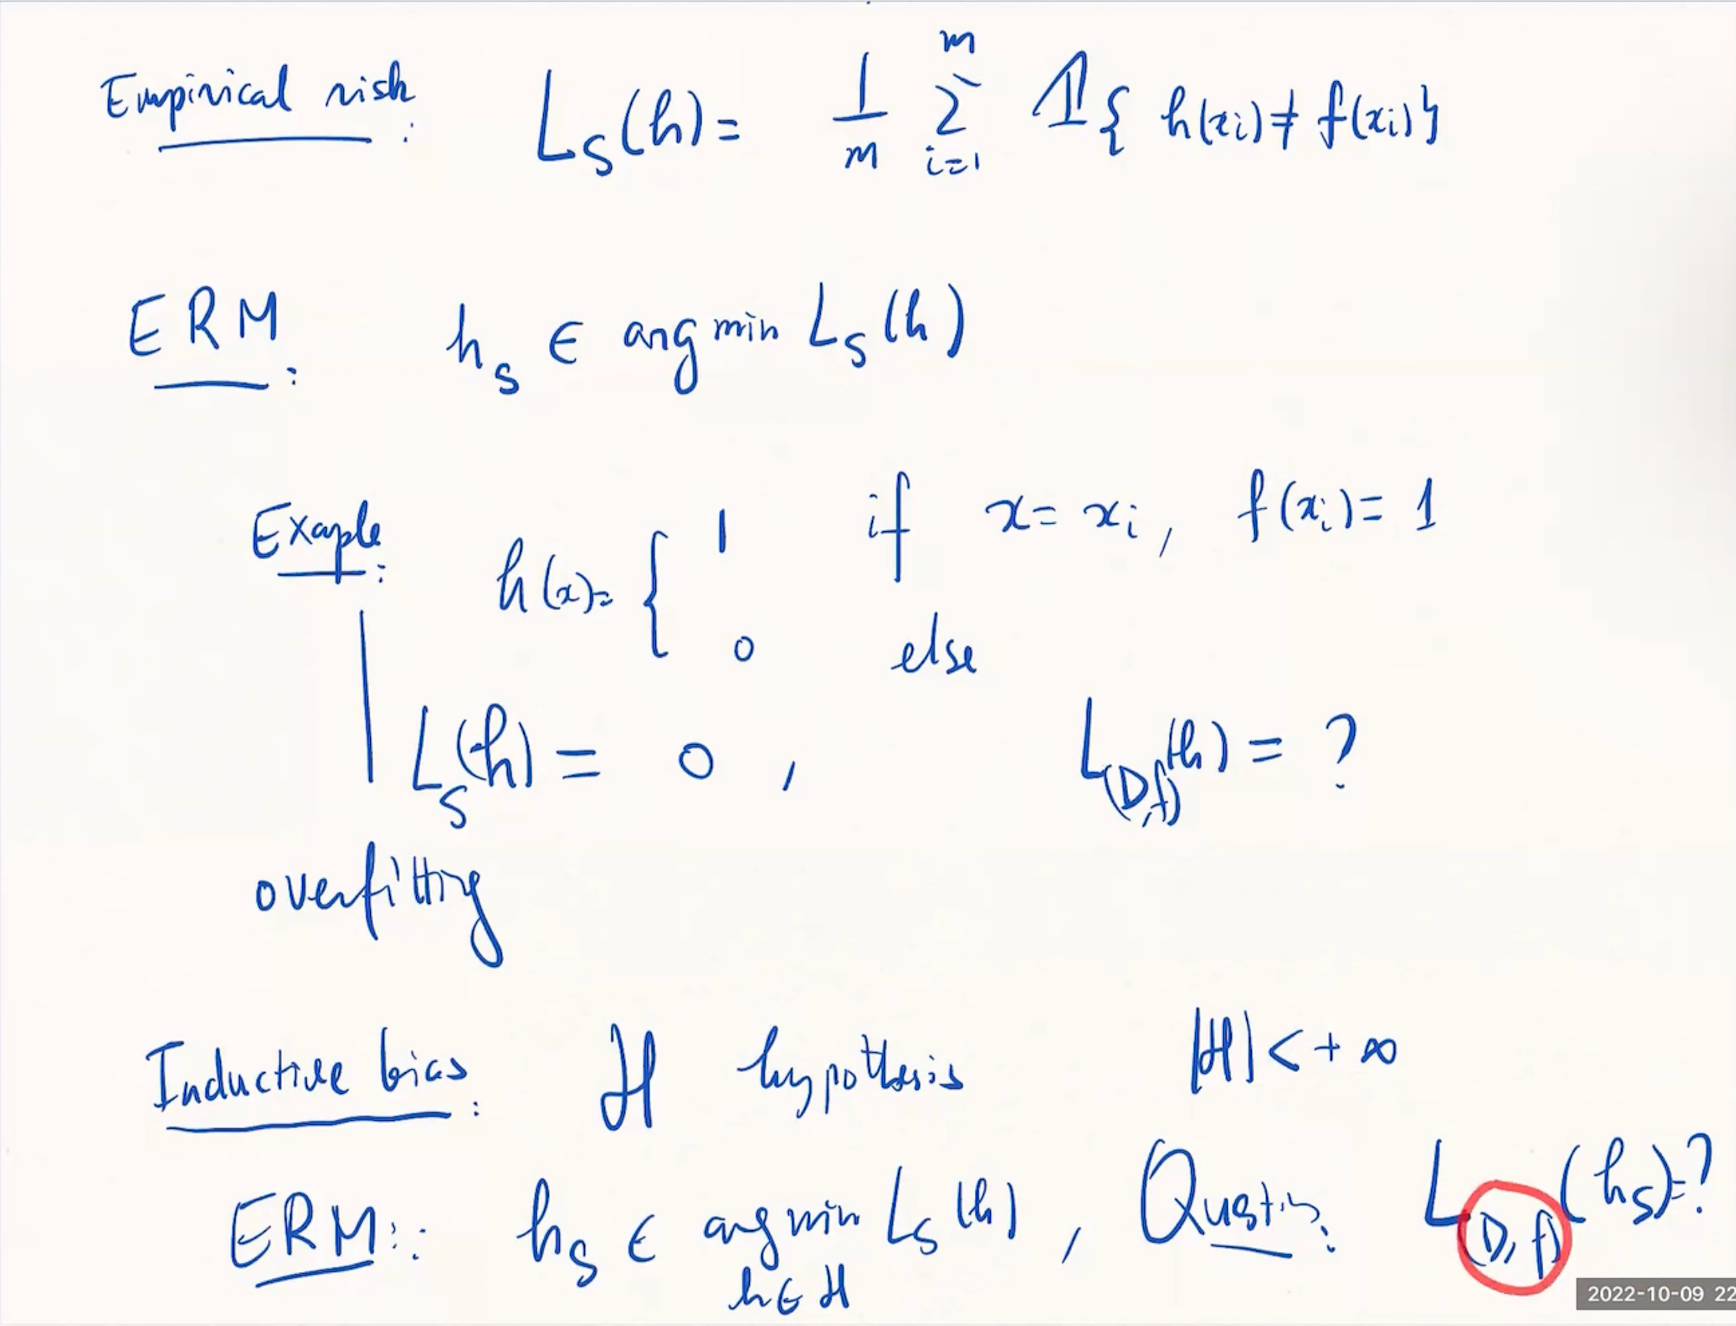 Empirical risk: L_S(h) = 1/m Σ_{i=1}^{m} 𝟙{ h(x_i) ≠ f(x_i) }
ERM: h_S ∈ arg min L_S(h)
Exaple: h(x) = { 1 if x = x_i, f(x_i) = 1
0 else
L_S(h) = 0, L_(D,f)(h) = ?
overfitting
Inductive bias: H hypothesis |H| < +∞
ERM: h_S ∈ arg min_{h∈H} L_S(h), Question: L_(D,f)(h_S) = ?
2022-10-09 22